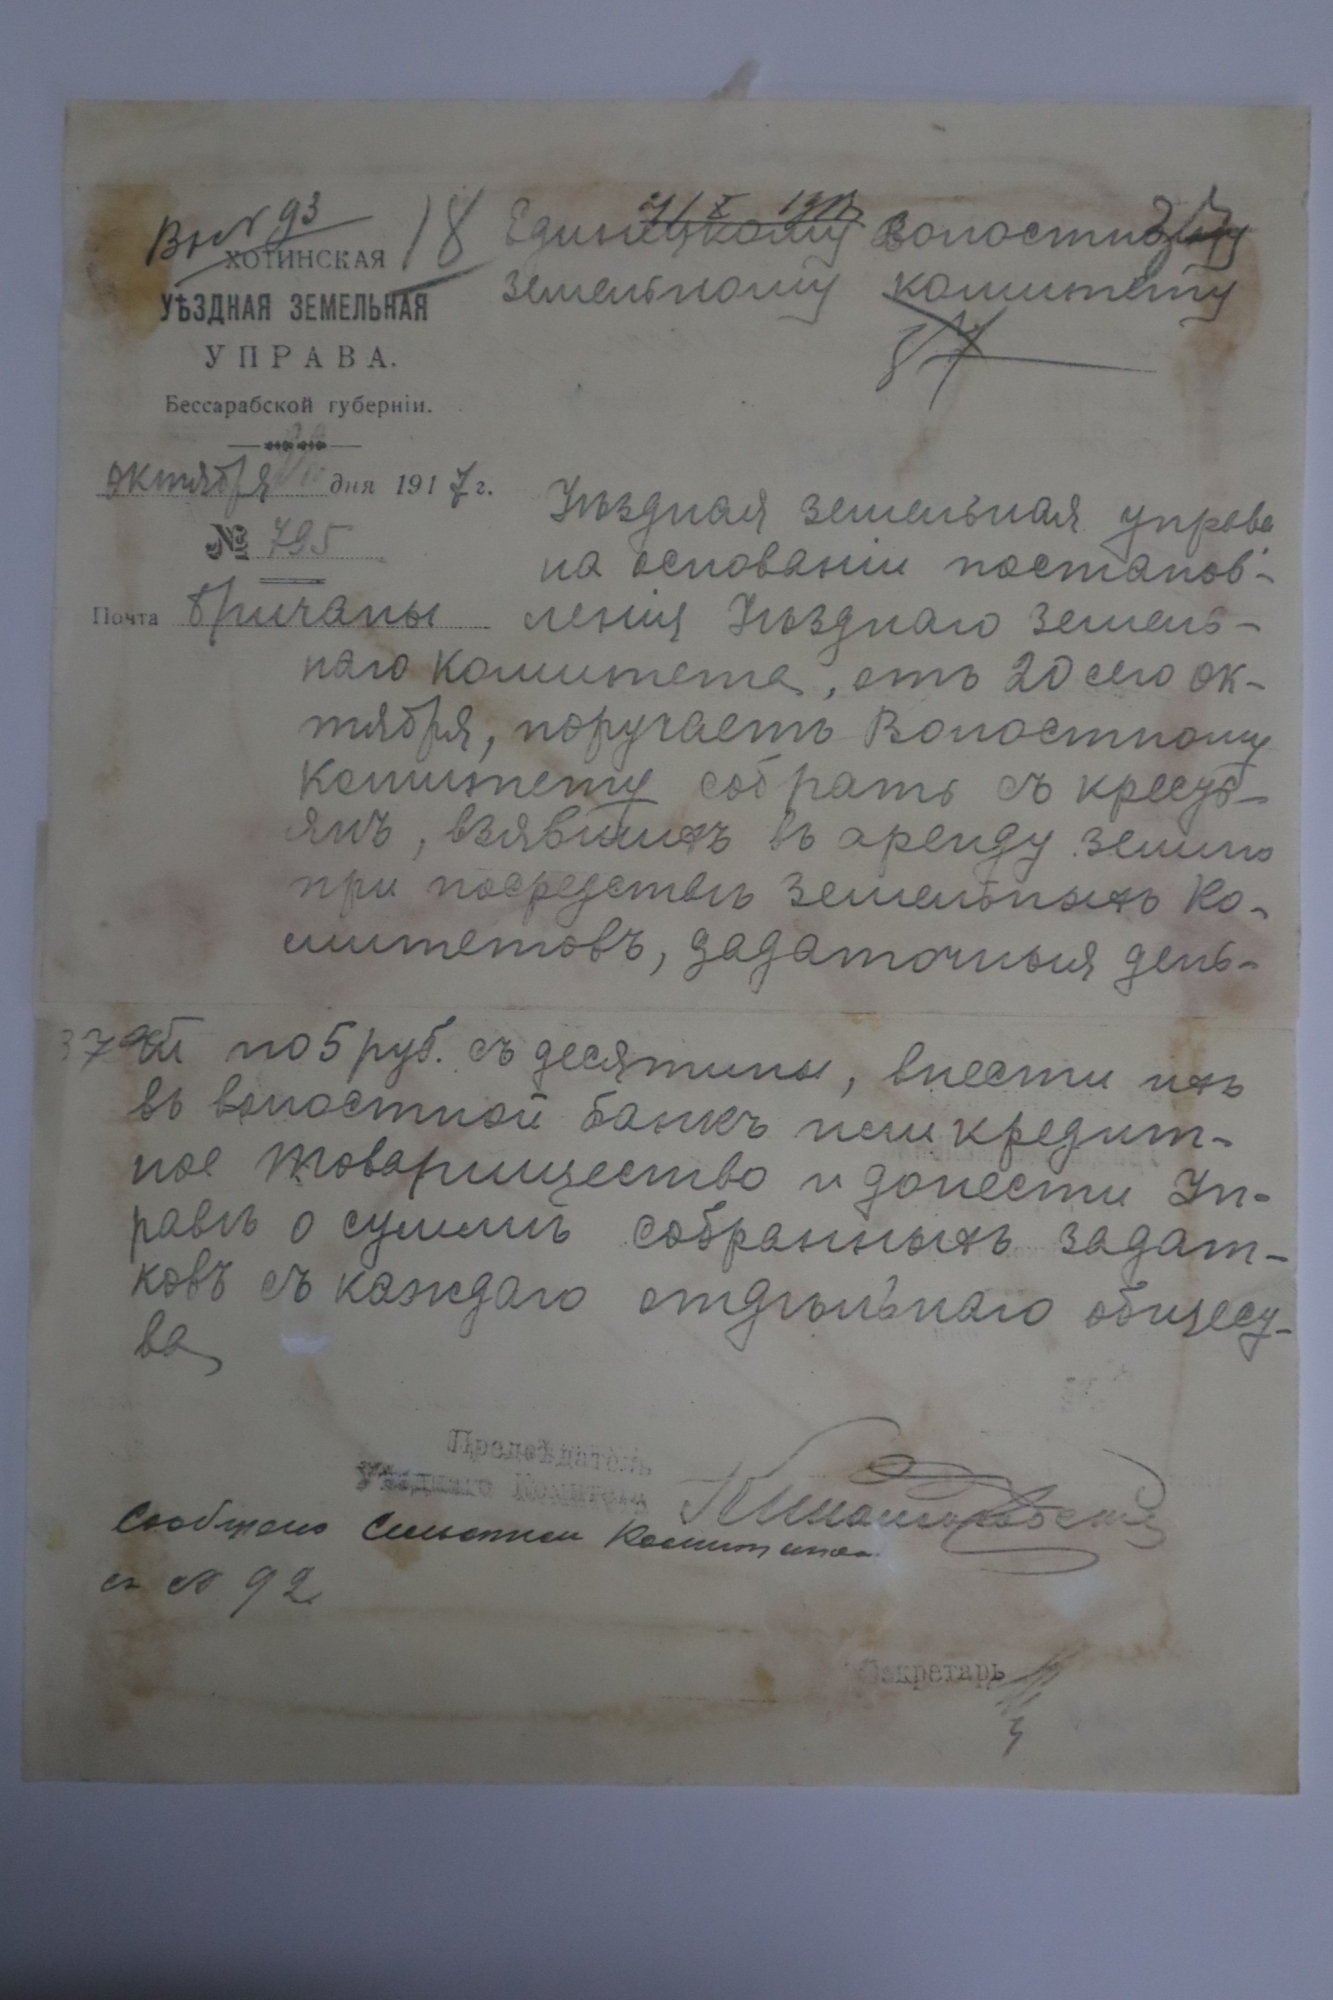 Вх № 93
18
ХОТИНСКАЯ
УѢЗДНАЯ ЗЕМЕЛЬНАЯ
УПРАВА.
Бессарабской губерніи.
октября дня 1917 г.
№ 795
Почта Бричаны
Единецкому волостному
земельному комитету
Уѣздная земельная управа
на основаніи постанов-
ленія Уѣзднаго земель-
наго комитета, отъ 20 сего ок-
тября, поручаетъ Волостному
Комитету собрать съ кресть-
янъ, взявшихъ въ аренду землю
при посредствѣ земельныхъ Ко-
митетовъ, задаточныя день-
37 по 5 руб. съ десятины, внести ихъ
въ волостной банкъ или кредит-
ное товарищество и донести Уп-
равѣ о суммѣ собранныхъ задат-
ковъ съ каждаго отдѣльнаго общест-
ва
Предсѣдатель
Уѣзднаго Комитета
Сообщено Сельским Комитетам
за № 92
Секретарь